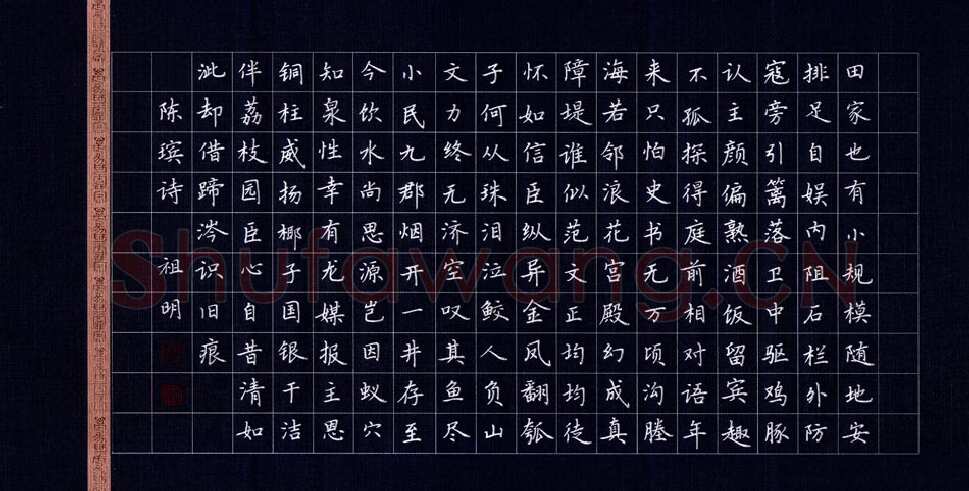 田家也有小规模随地安
排足自娱内阻石栏外防
寇旁引篱落卫中驱鸡豚
认主颜偏熟酒饭留宾趣
不孤探得庭前相对语年
来只怕史书无万顷沟塍
海若邻浪花宫殿幻成真
障堤谁似范文正均均徒
怀如信臣纵异金风翻瓠
子何从珠泪泣鲛人负山
文力终无济空叹其鱼尽
小民九郡烟开一井存至
今饮水尚思源岂因蚁穴
知泉性幸有龙媒报主恩
铜柱威扬椰子国银干洁
伴荔枝园臣心自昔清如
泚却借蹄涔识旧痕
陈瑸诗 祖明
Shufawang.CN